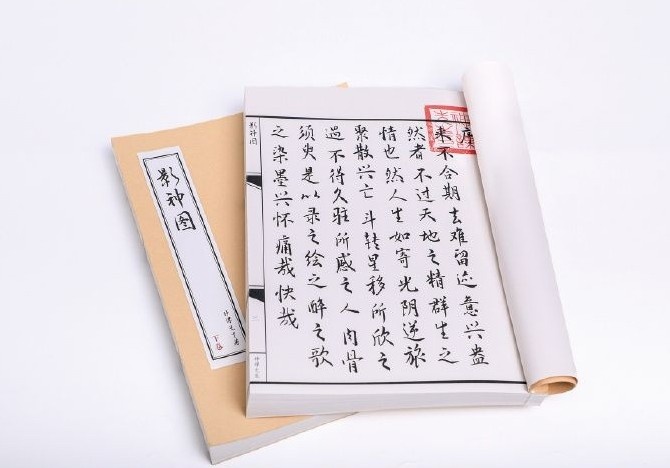 序
来不合期去难留迹意兴盎
然者不过天地之精群生之
情也然人生如寄光阴逆旅
聚散兴亡斗转星移所欣之
遇不得久驻所感之人肉骨
须臾是以录之绘之醉之歌
之染墨兴怀痛哉快哉
影神图
影神图
下卷